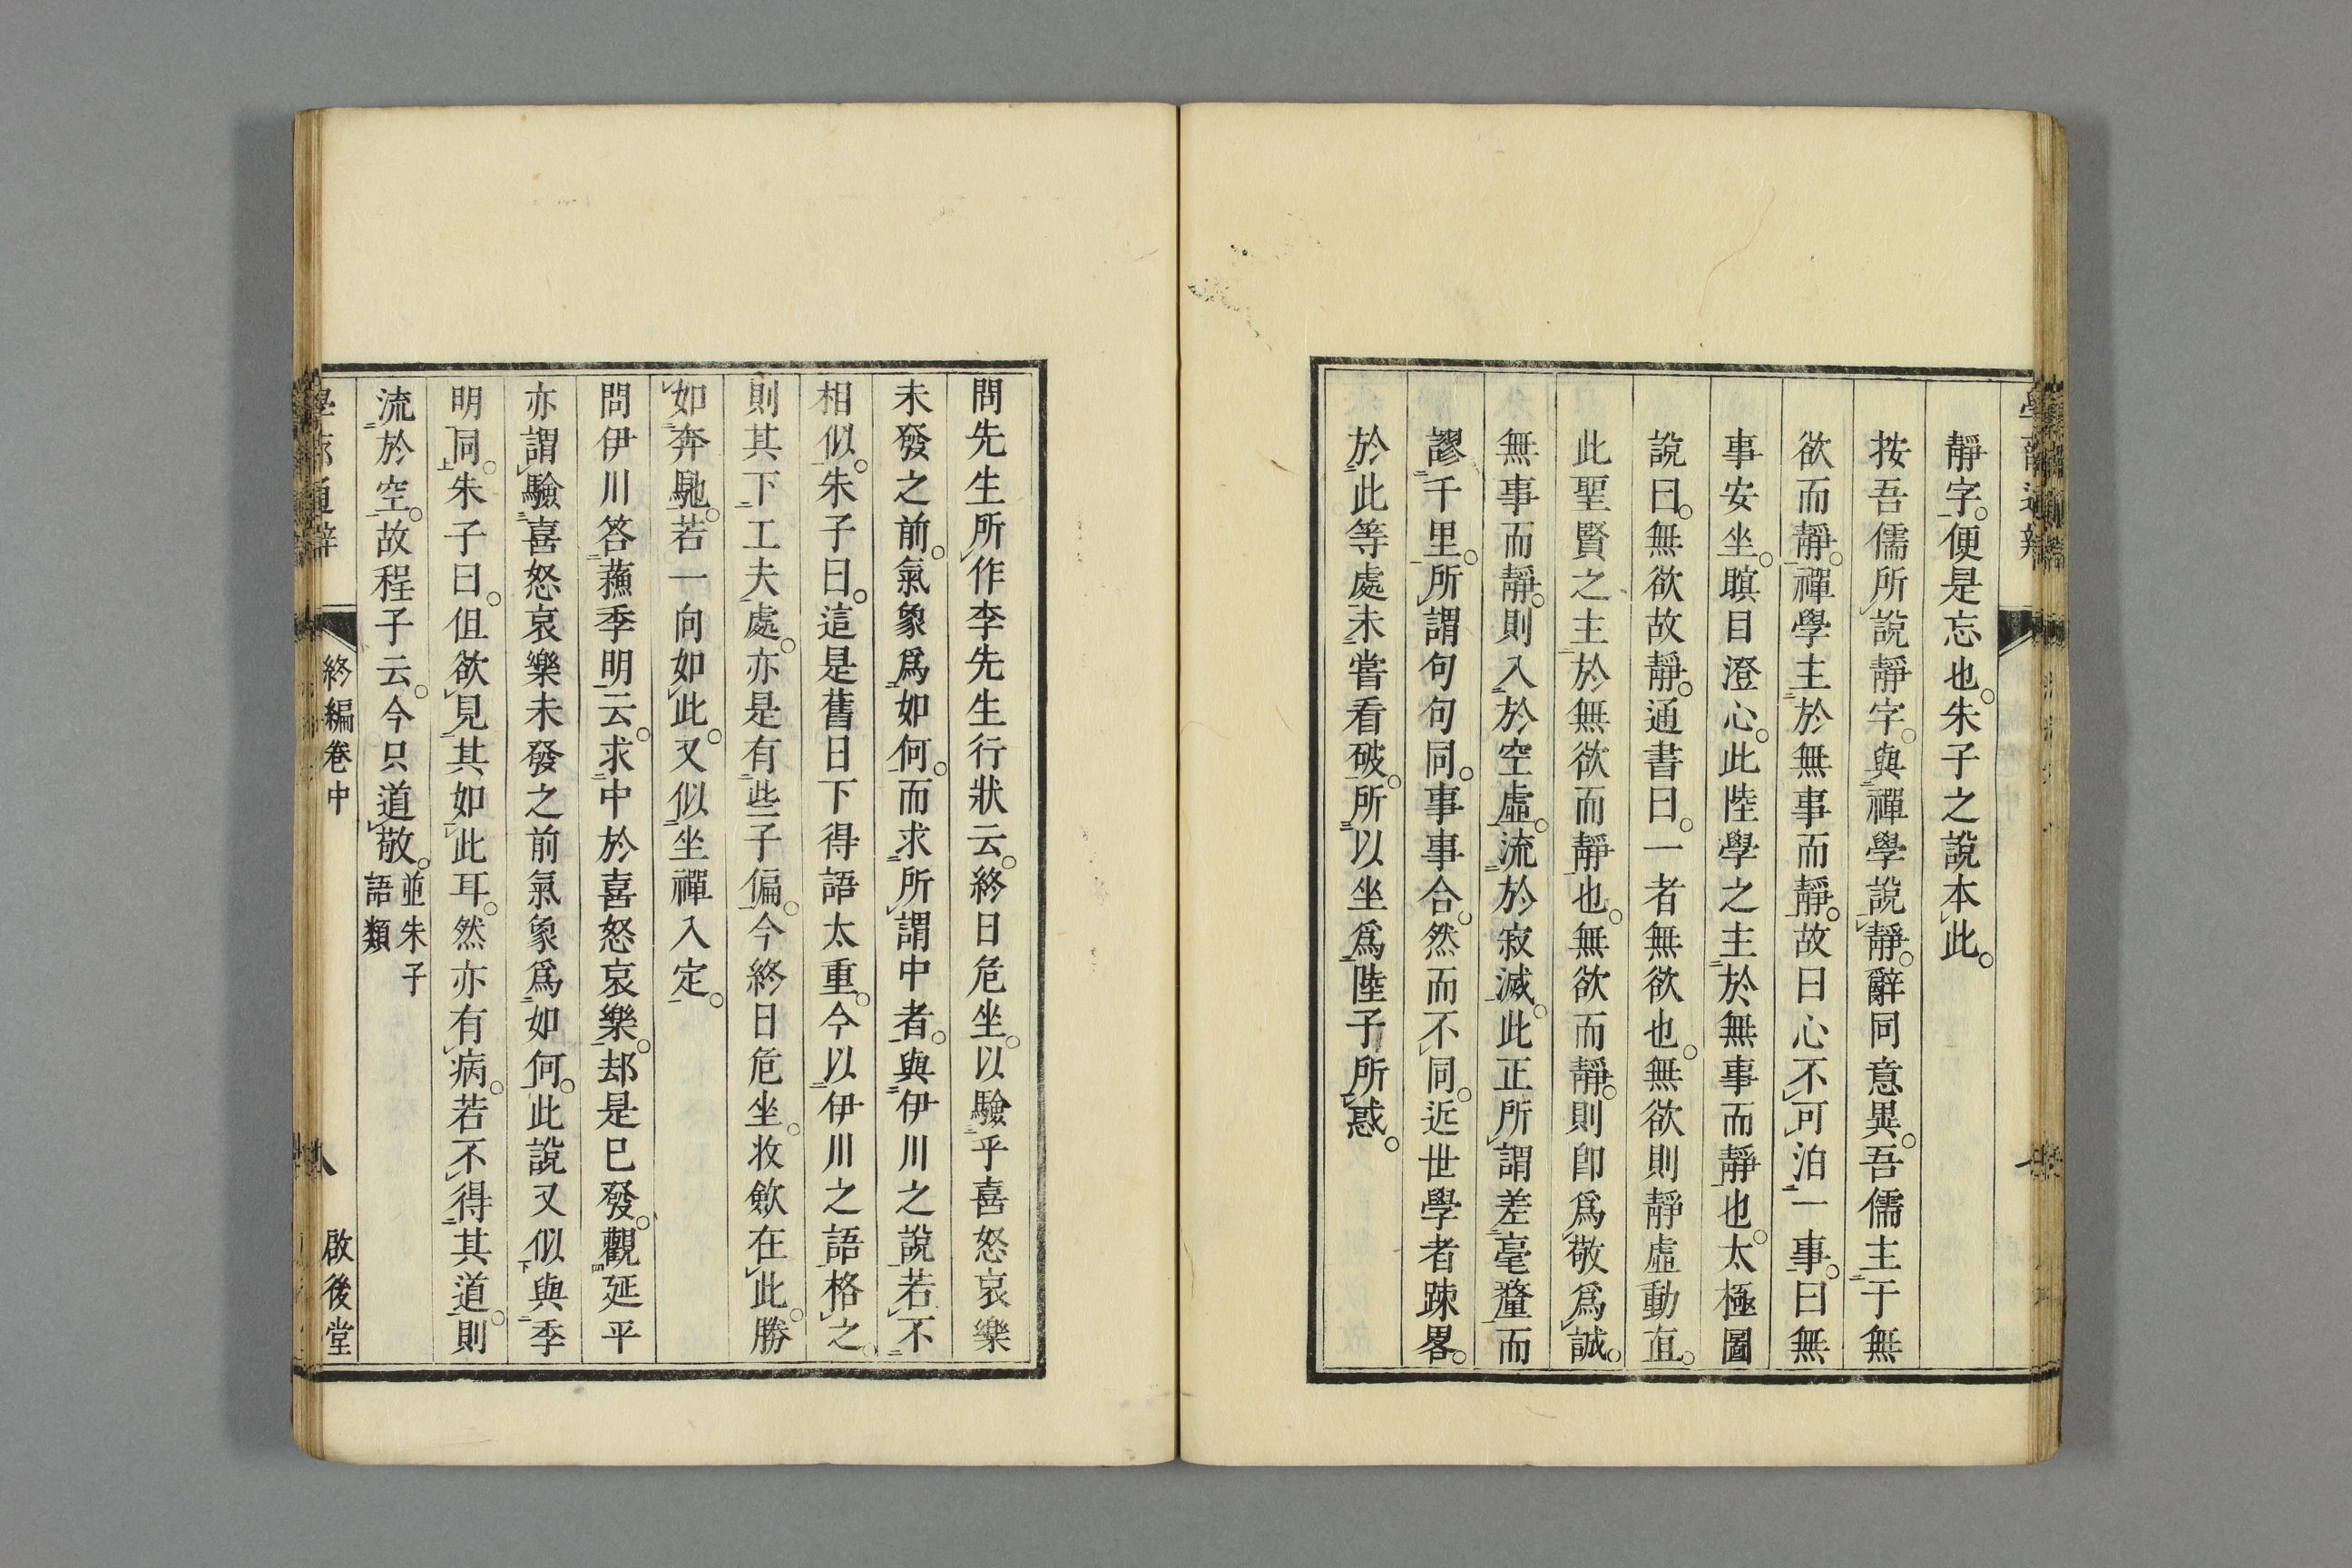 靜字。便是忘也。朱子之說本此。
按吾儒所說靜字。與禪學說靜。辭同意異。吾儒主于無
欲而靜。禪學主於無事而靜。故曰心不可泊一事。曰無
事安坐。瞑目澄心。此陸學之主於無事而靜也。太極圖
說曰。無欲故靜。通書曰。一者無欲也。無欲則靜虛動直。
此聖賢之主於無欲而靜也。無欲而靜。則卽爲敬爲誠。
無事而靜。則入於空虛。流於寂滅。此正所謂差毫釐而
謬千里。所謂句句同。事事合。然而不同。近世學者踈畧。
於此等處未嘗看破。所以坐爲陸子所惑。
問先生所作李先生行狀云。終日危坐。以驗乎喜怒哀樂
未發之前。氣象爲如何。而求所謂中者。與伊川之說若不
相似。朱子曰。這是舊日下得語太重。今以伊川之語格之。
則其下工夫處。亦是有些子偏。今終日危坐。收斂在此。勝
如奔馳。若一向如此。又似坐禪入定。
問伊川答蘓季明云。求中於喜怒哀樂。却是已發。觀延平
亦謂驗喜怒哀樂未發之前氣象爲如何。此說又似與季
明同。朱子曰。但欲見其如此耳。然亦有病。若不得其道。則
流於空。故程子云。今只道敬。並朱子語類
學蔀通辯 終編卷中 八 啟後堂